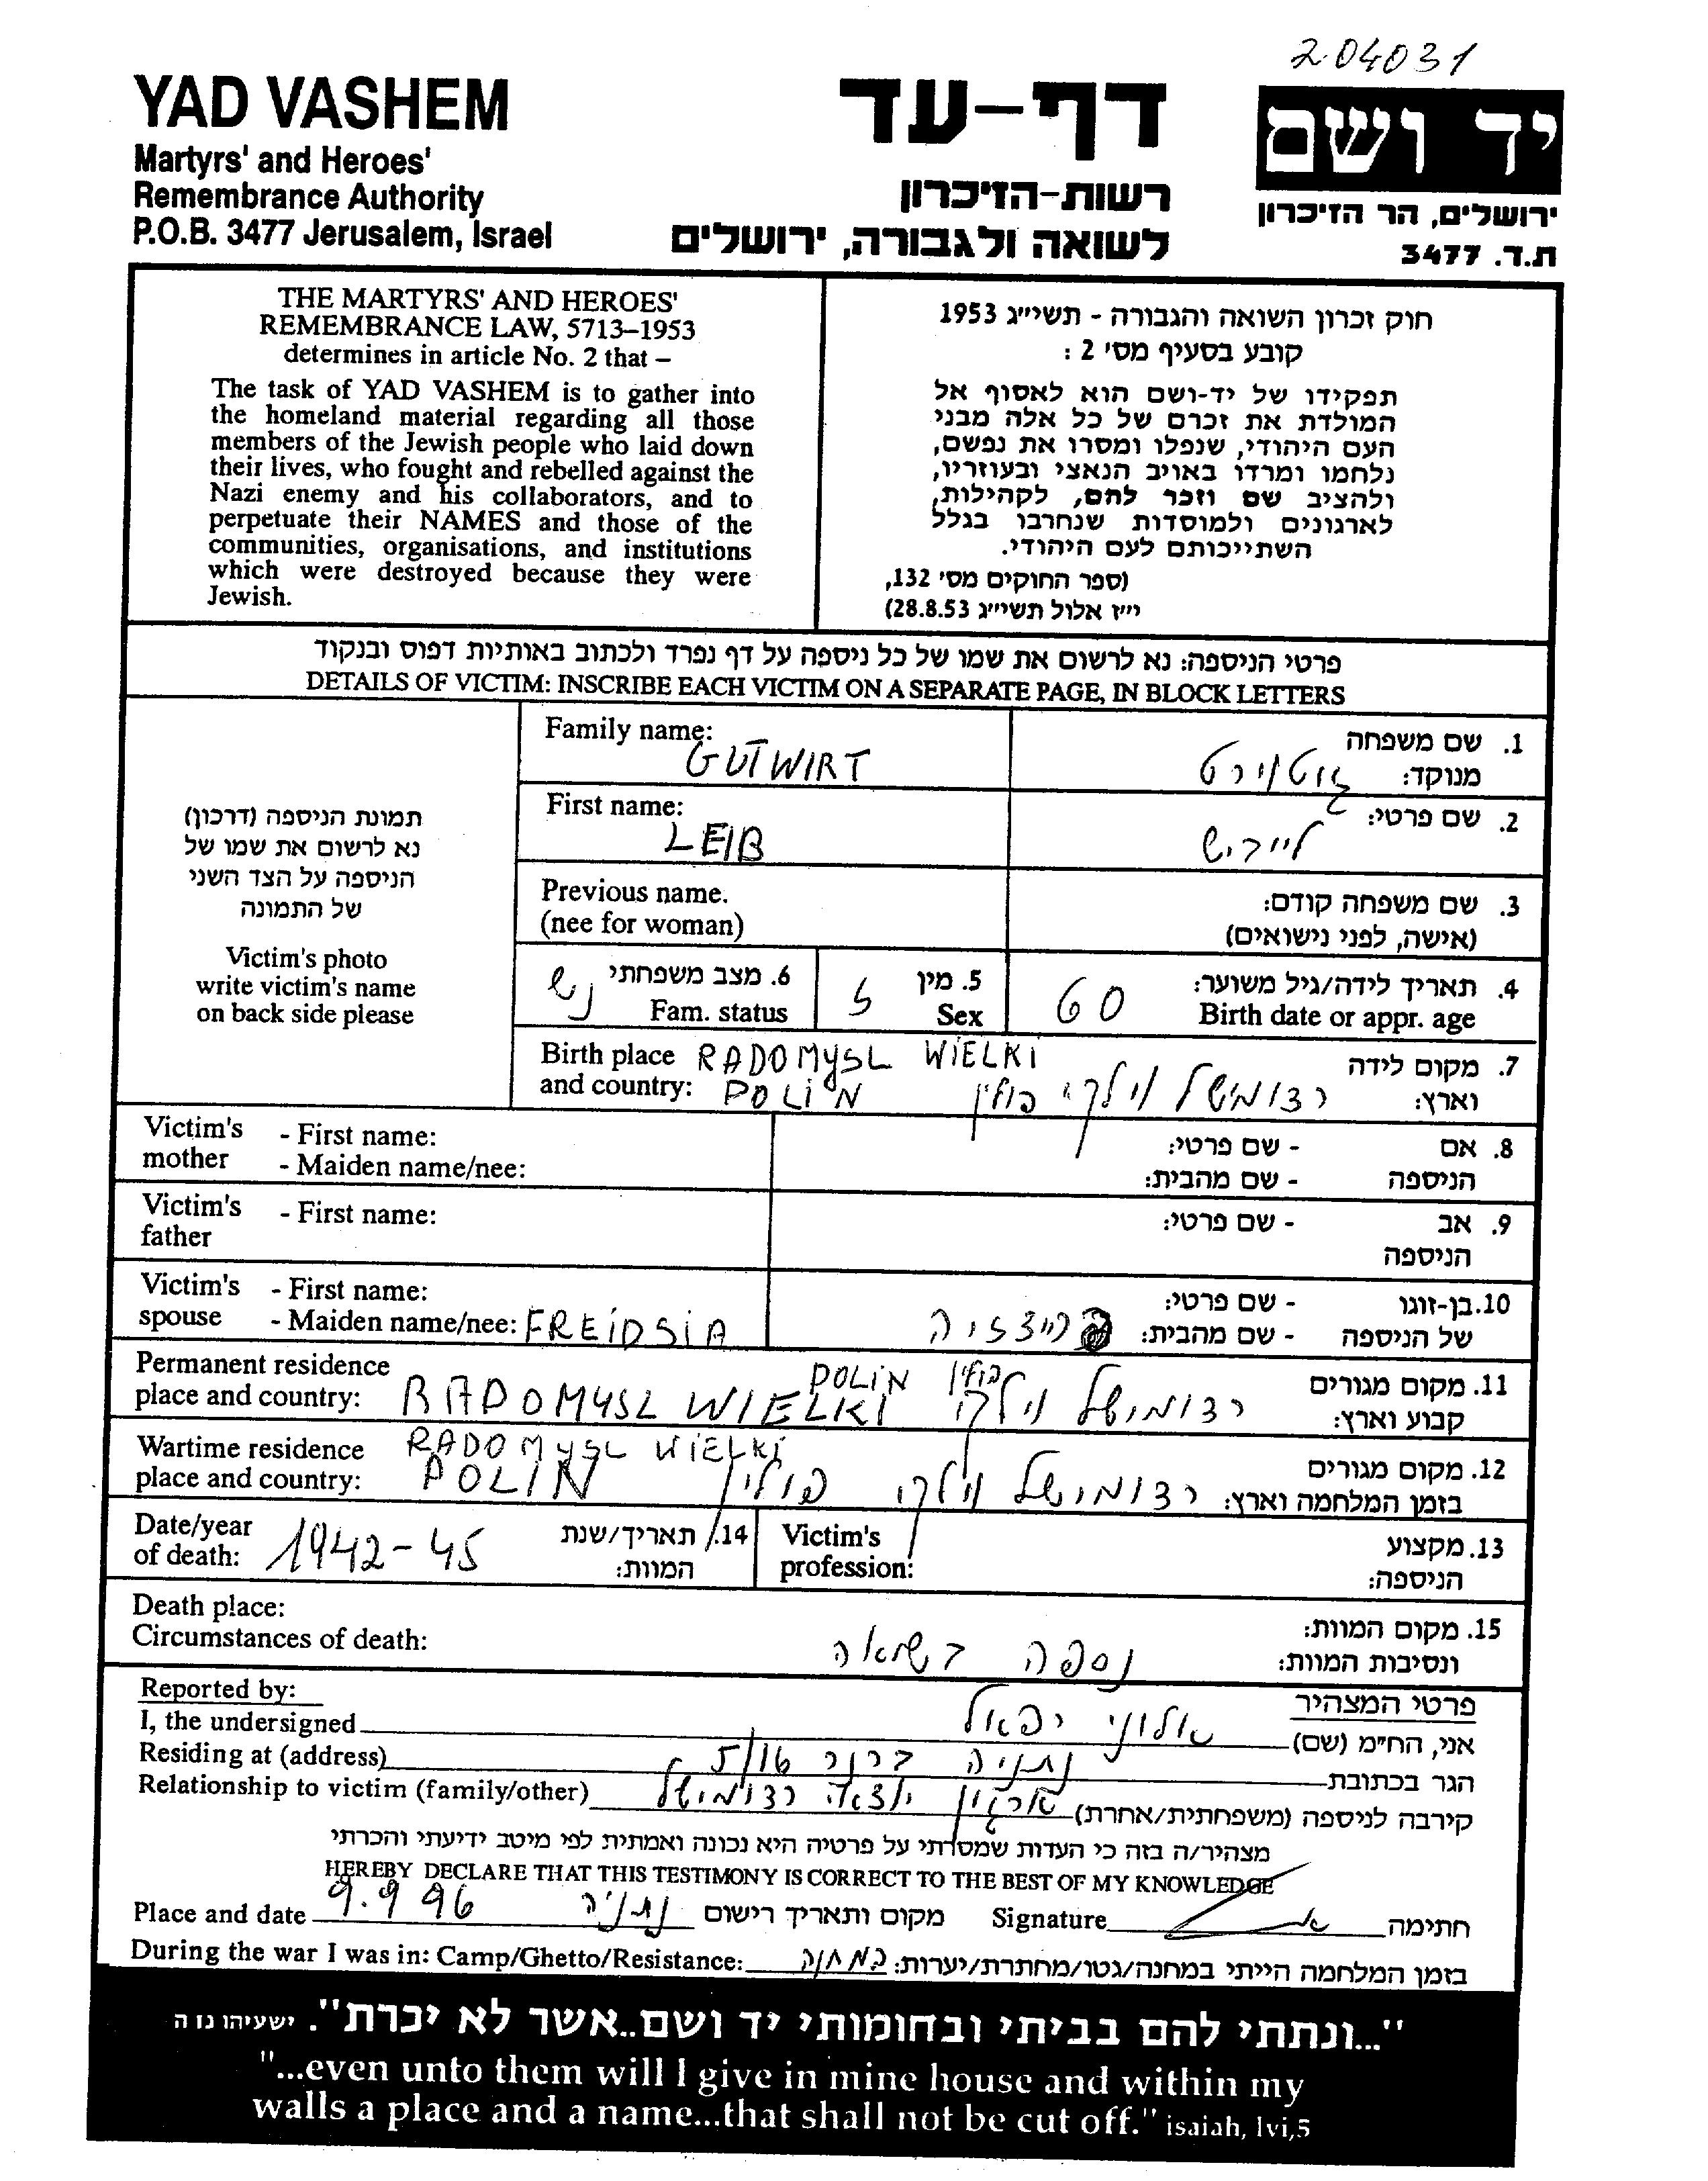 204031
YAD VASHEM
Martyrs' and Heroes'
Remembrance Authority
P.O.B. 3477 Jerusalem, Israel
דף-עד
רשות-הזיכרון
לשואה ולגבורה, ירושלים
יד ושם
ירושלים, הר הזיכרון
ת.ד. 3477
THE MARTYRS' AND HEROES'
REMEMBRANCE LAW, 5713–1953
determines in article No. 2 that –
The task of YAD VASHEM is to gather into
the homeland material regarding all those
members of the Jewish people who laid down
their lives, who fought and rebelled against the
Nazi enemy and his collaborators, and to
perpetuate their NAMES and those of the
communities, organisations, and institutions
which were destroyed because they were
Jewish.
חוק זכרון השואה והגבורה - תשי״ג 1953
קובע בסעיף מס' 2 :
תפקידו של יד-ושם הוא לאסוף אל
המולדת את זכרם של כל אלה מבני
העם היהודי, שנפלו ומסרו את נפשם,
נלחמו ומרדו באויב הנאצי ובעוזריו,
ולהציב שם וזכר להם, לקהילות,
לארגונים ולמוסדות שנחרבו בגלל
השתייכותם לעם היהודי.
(ספר החוקים מס' 132,
י״ז אלול תשי״ג 28.8.53)
פרטי הניספה: נא לרשום את שמו של כל ניספה על דף נפרד ולכתוב באותיות דפוס ובנקוד
DETAILS OF VICTIM: INSCRIBE EACH VICTIM ON A SEPARATE PAGE, IN BLOCK LETTERS
תמונת הניספה (דרכון)
נא לרשום את שמו של
הניספה על הצד השני
של התמונה
Victim's photo
write victim's name
on back side please
Family name: GUTWIRT
1. שם משפחה
מנוקד: גוטוירט
First name: LEIB
2. שם פרטי: לייביש
Previous name.
(nee for woman)
3. שם משפחה קודם:
(אישה, לפני נישואים)
6. מצב משפחתי נשוי
Fam. status
5. מין ז
Sex
4. תאריך לידה/גיל משוער: 60
Birth date or appr. age
Birth place RADOMYSL WIELKI
and country: POLIN
7. מקום לידה
וארץ: רדומישל וילקי פולין
Victim's - First name:
mother - Maiden name/nee:
8. אם - שם פרטי:
הניספה - שם מהבית:
Victim's - First name:
father
9. אב - שם פרטי:
הניספה
Victim's - First name:
spouse - Maiden name/nee: FREIDSIA
10. בן-זוגו - שם פרטי:
של הניספה - שם מהבית: פריידזיה
Permanent residence
place and country: RADOMYSL WIELKI POLIN
11. מקום מגורים
קבוע וארץ: רדומישל וילקי פולין
Wartime residence RADOMYSL WIELKI
place and country: POLIN
12. מקום מגורים
בזמן המלחמה וארץ: רדומישל וילקי פולין
Date/year
of death: 1942-45
14. תאריך/שנת
המוות:
Victim's
profession:
13. מקצוע
הניספה:
Death place:
Circumstances of death:
15. מקום המוות:
ונסיבות המוות: נספה בשואה
Reported by:
פרטי המצהיר
I, the undersigned
אני, הח״מ (שם) אלוני רפאל
Residing at (address)
הגר בכתובת נתניה ברנר 5/16
Relationship to victim (family/other)
קירבה לניספה (משפחתית/אחרת) ארגון יוצאי רדומישל
מצהיר/ה בזה כי העדות שמסרתי על פרטיה היא נכונה ואמתית לפי מיטב ידיעתי והכרתי
HEREBY DECLARE THAT THIS TESTIMONY IS CORRECT TO THE BEST OF MY KNOWLEDGE
Place and date 9.9 96 נתניה מקום ותאריך רישום Signature חתימה
During the war I was in: Camp/Ghetto/Resistance: בזמן המלחמה הייתי במחנה/גטו/מחתרת/יערות: במחנה
"...ונתתי להם בביתי ובחומותי יד ושם..אשר לא יכרת". ישעיהו נו ה
"...even unto them will I give in mine house and within my
walls a place and a name...that shall not be cut off." isaiah, lvi,5